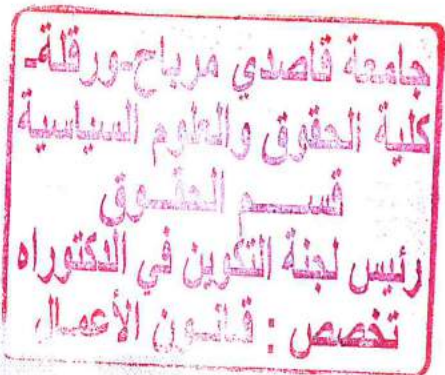 جامعة قاصدي مرباح-ورقلة-
كلية الحقوق والعلوم السياسية
قســم الحقــوق
رئيس لجنة التكوين في الدكتوراه
تخصص : قانــون الأعمــال